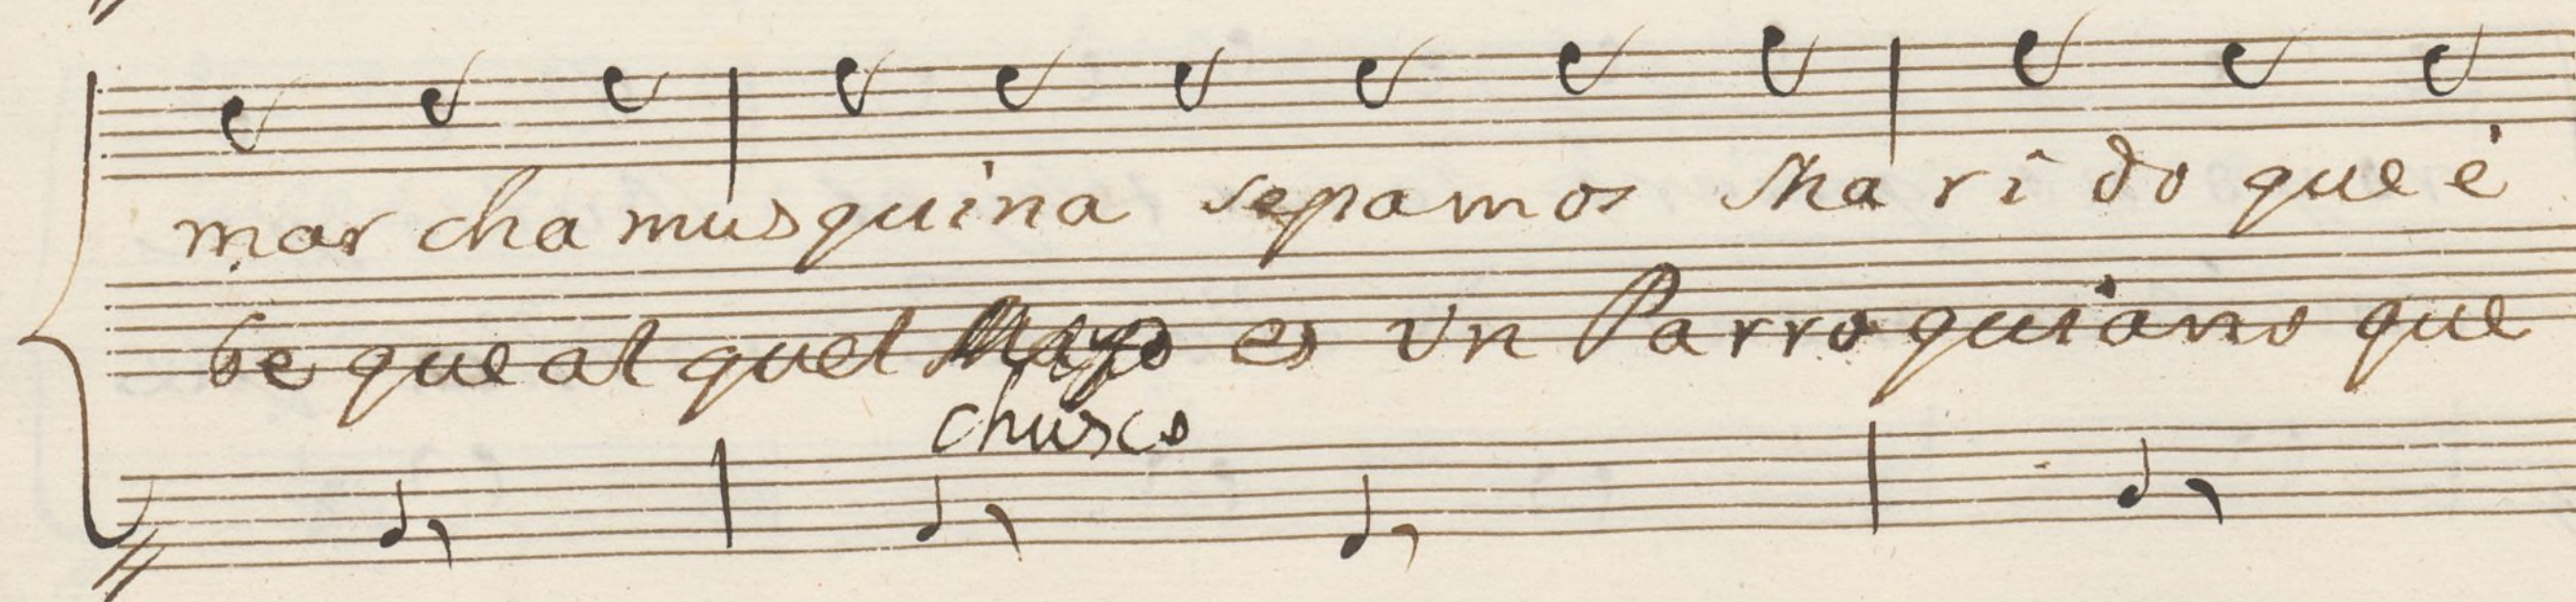 mar cha musquina sepamos Mari do que é
be que at quel Majo es Vn Parroquiano que
chusco